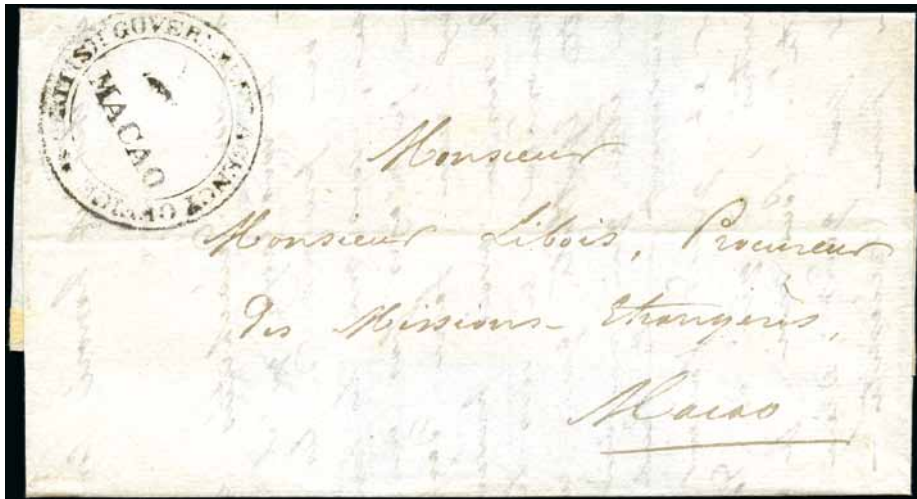 BRITISH GOVERNMENT AGENCY OFFICE
MACAO
Monsieur
Monsieur Libois, Procureur
des Missions Etrangères,
Macao